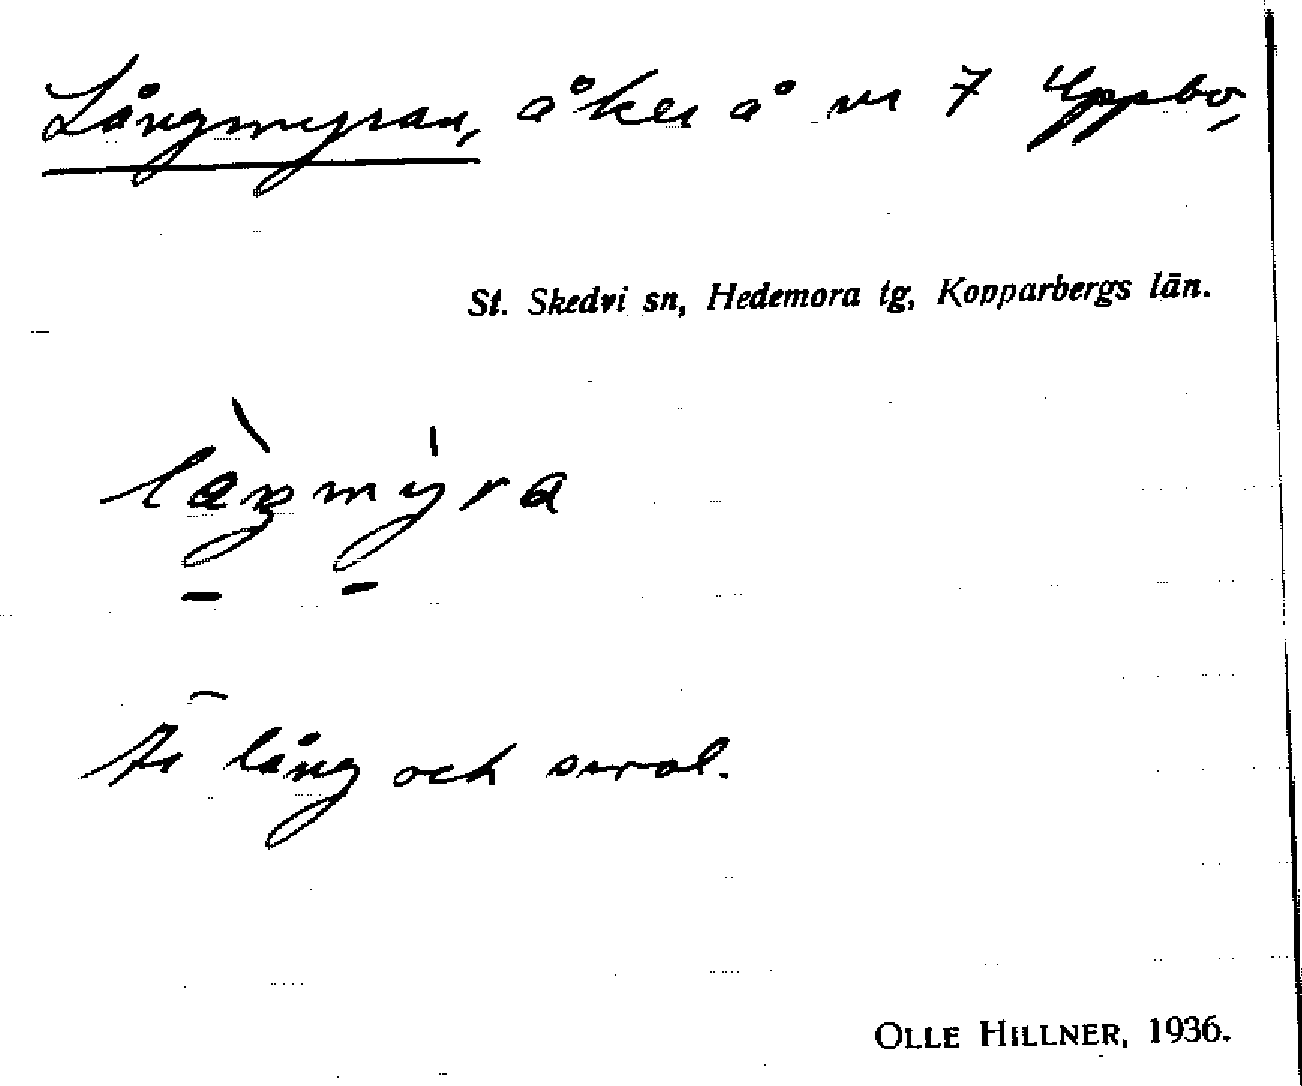 Långmyran, åker å nr 7 Uppbo,
St. Skedvi sn, Hedemora tg, Kopparbergs län.
Är lång och smal.
OLLE HILLNER, 1936.